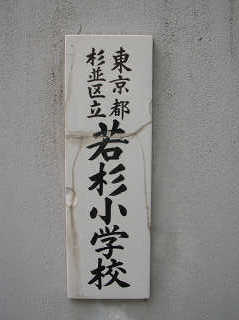 東京都
杉並区立
若杉小学校